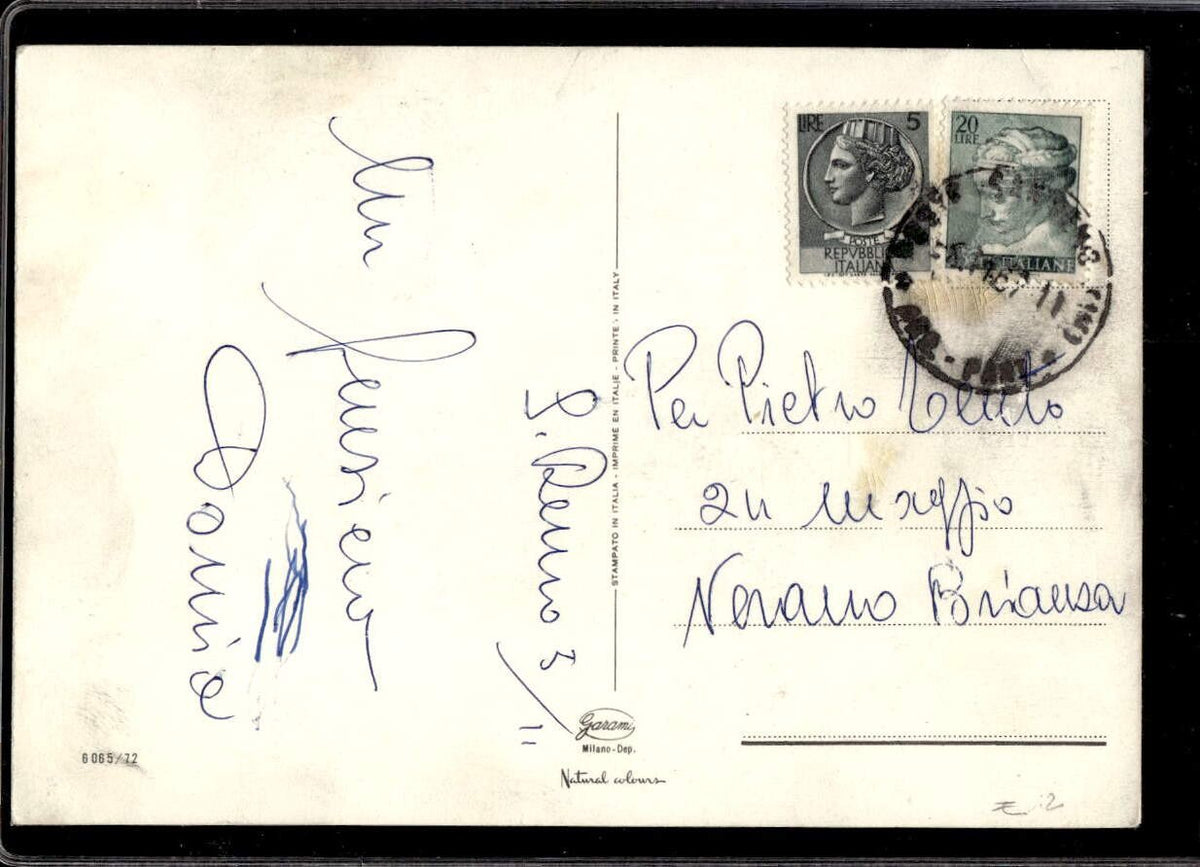 Un
pensiero
Donnie
S. Remo 3
11
STAMPATO IN ITALIA - IMPRIME EN ITALIE - PRINTED IN ITALY
LIRE 5
POSTE
REPVBBLICA
ITALIANA
20
LIRE
ITALIANE
Per Pietro
24 maggio
Verano Brianza
garami
Milano-Dep.
Natural colours
6065/72